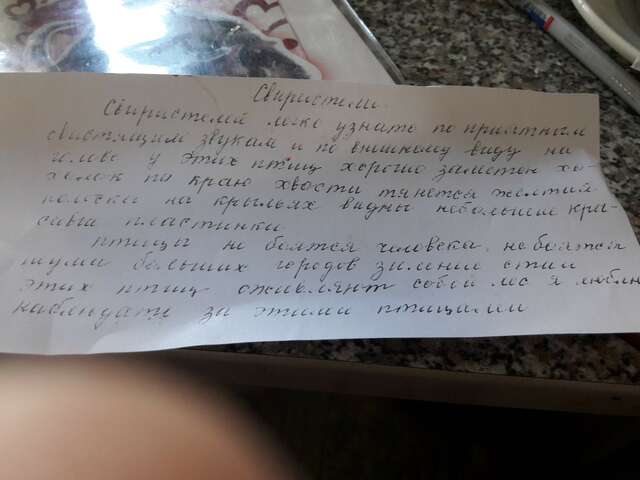 Свиристели.
Свиристелей легко узнать по приятным
свистящим звукам и по внишнему виду на
голове у этих птиц хорошо заметен хо-
холок по краю хвоста тянется желтий
полоска на крыльях видны небольшие кра-
савы пластинки
птицы не боятся человека, не боятся
шума больших городов зимние стаи
этих птиц оживляют собой лес я люблю
наблюдать за этими птицами